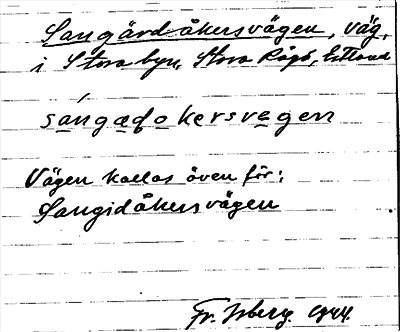 Sangärdåkersvägen, väg,
i Stora byn, Stora Rågö, Estland
sángædokersvegen
Vägen kallas även för:
Sangidåkersvägen
Fr. Isberg. 1944.